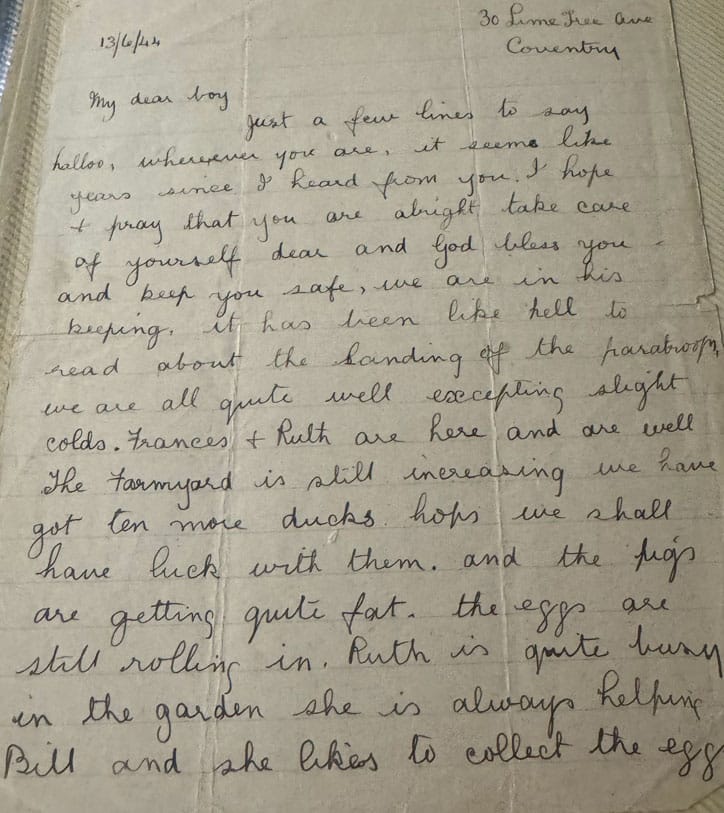 30 Lime Tree Ave
13/6/44
Coventry
My dear boy
Just a few lines to say
halloo, wherever you are, it seems like
years since I heard from you. I hope
+ pray that you are alright take care
of yourself dear and God bless you
and keep you safe, we are in his
keeping. it has been like hell to
read about the landing of the paratroops,
we are all quite well excepting slight
colds. Frances + Ruth are here and are well
The Farmyard is still increasing we have
got ten more ducks. hops we shall
have luck with them. and the pigs
are getting quite fat. the eggs are
still rolling in. Ruth is quite busy
in the garden she is always helping
Bill and she likes to collect the egg